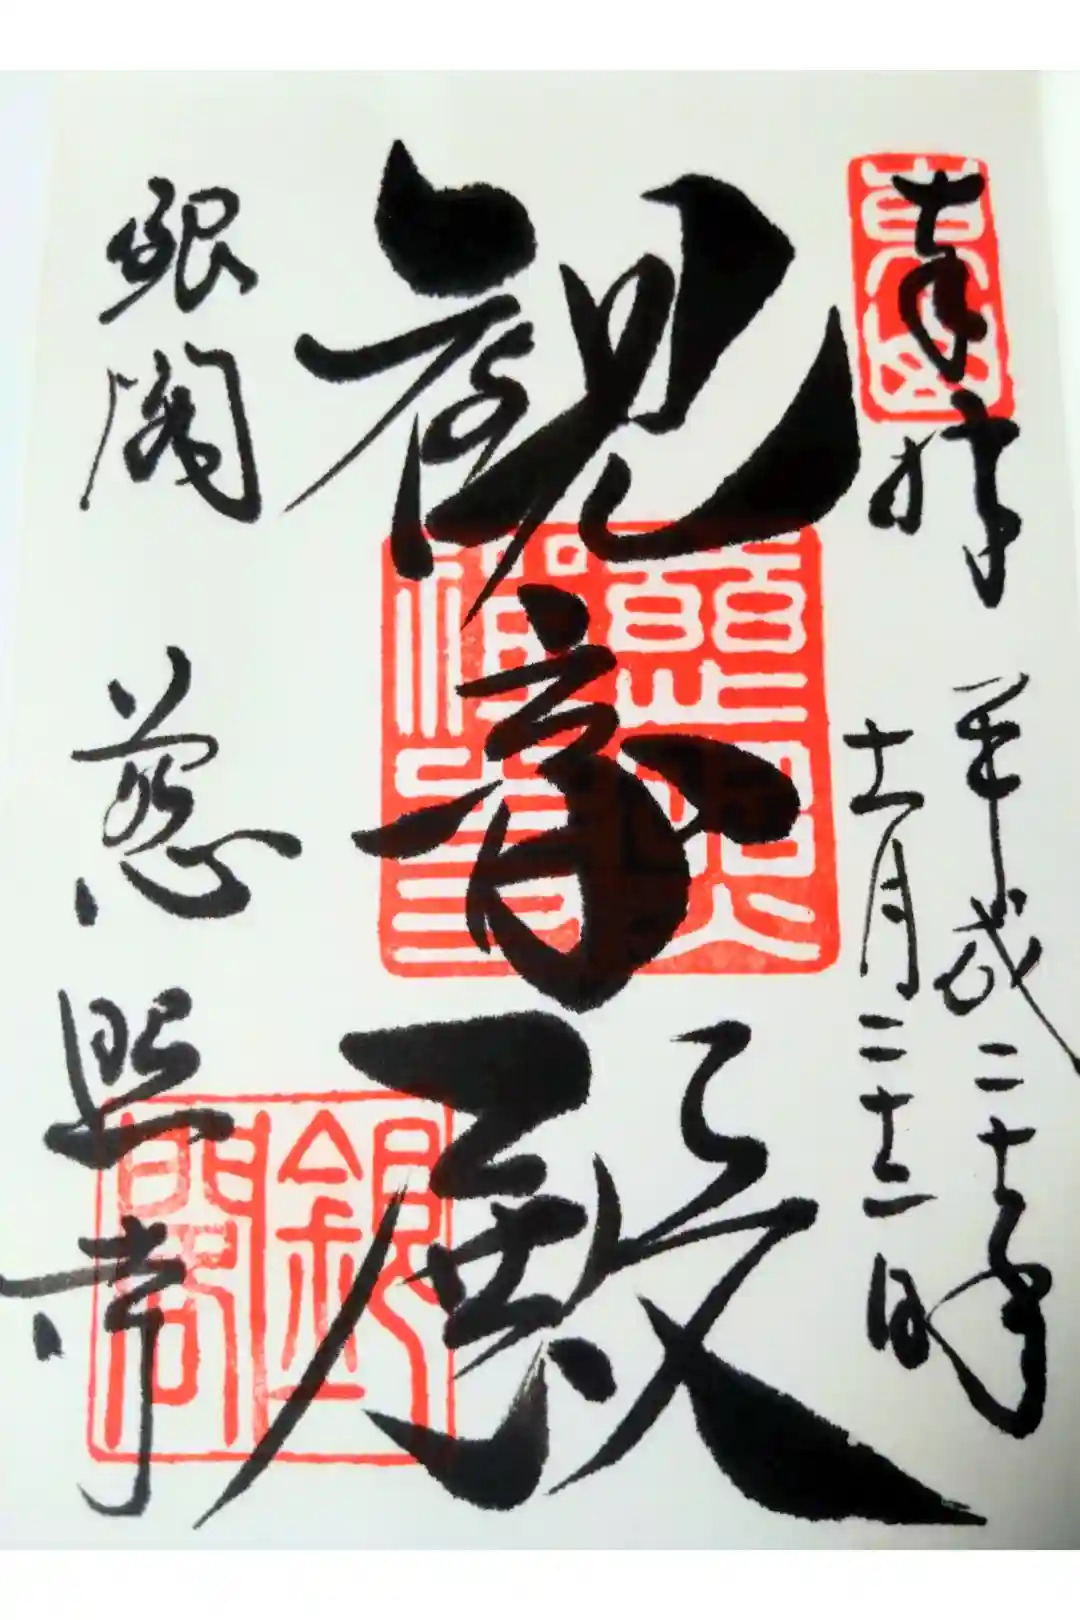 奉拝
平成二十七年
十一月二十三日
観音殿
銀閣 慈照寺
東山
銀閣